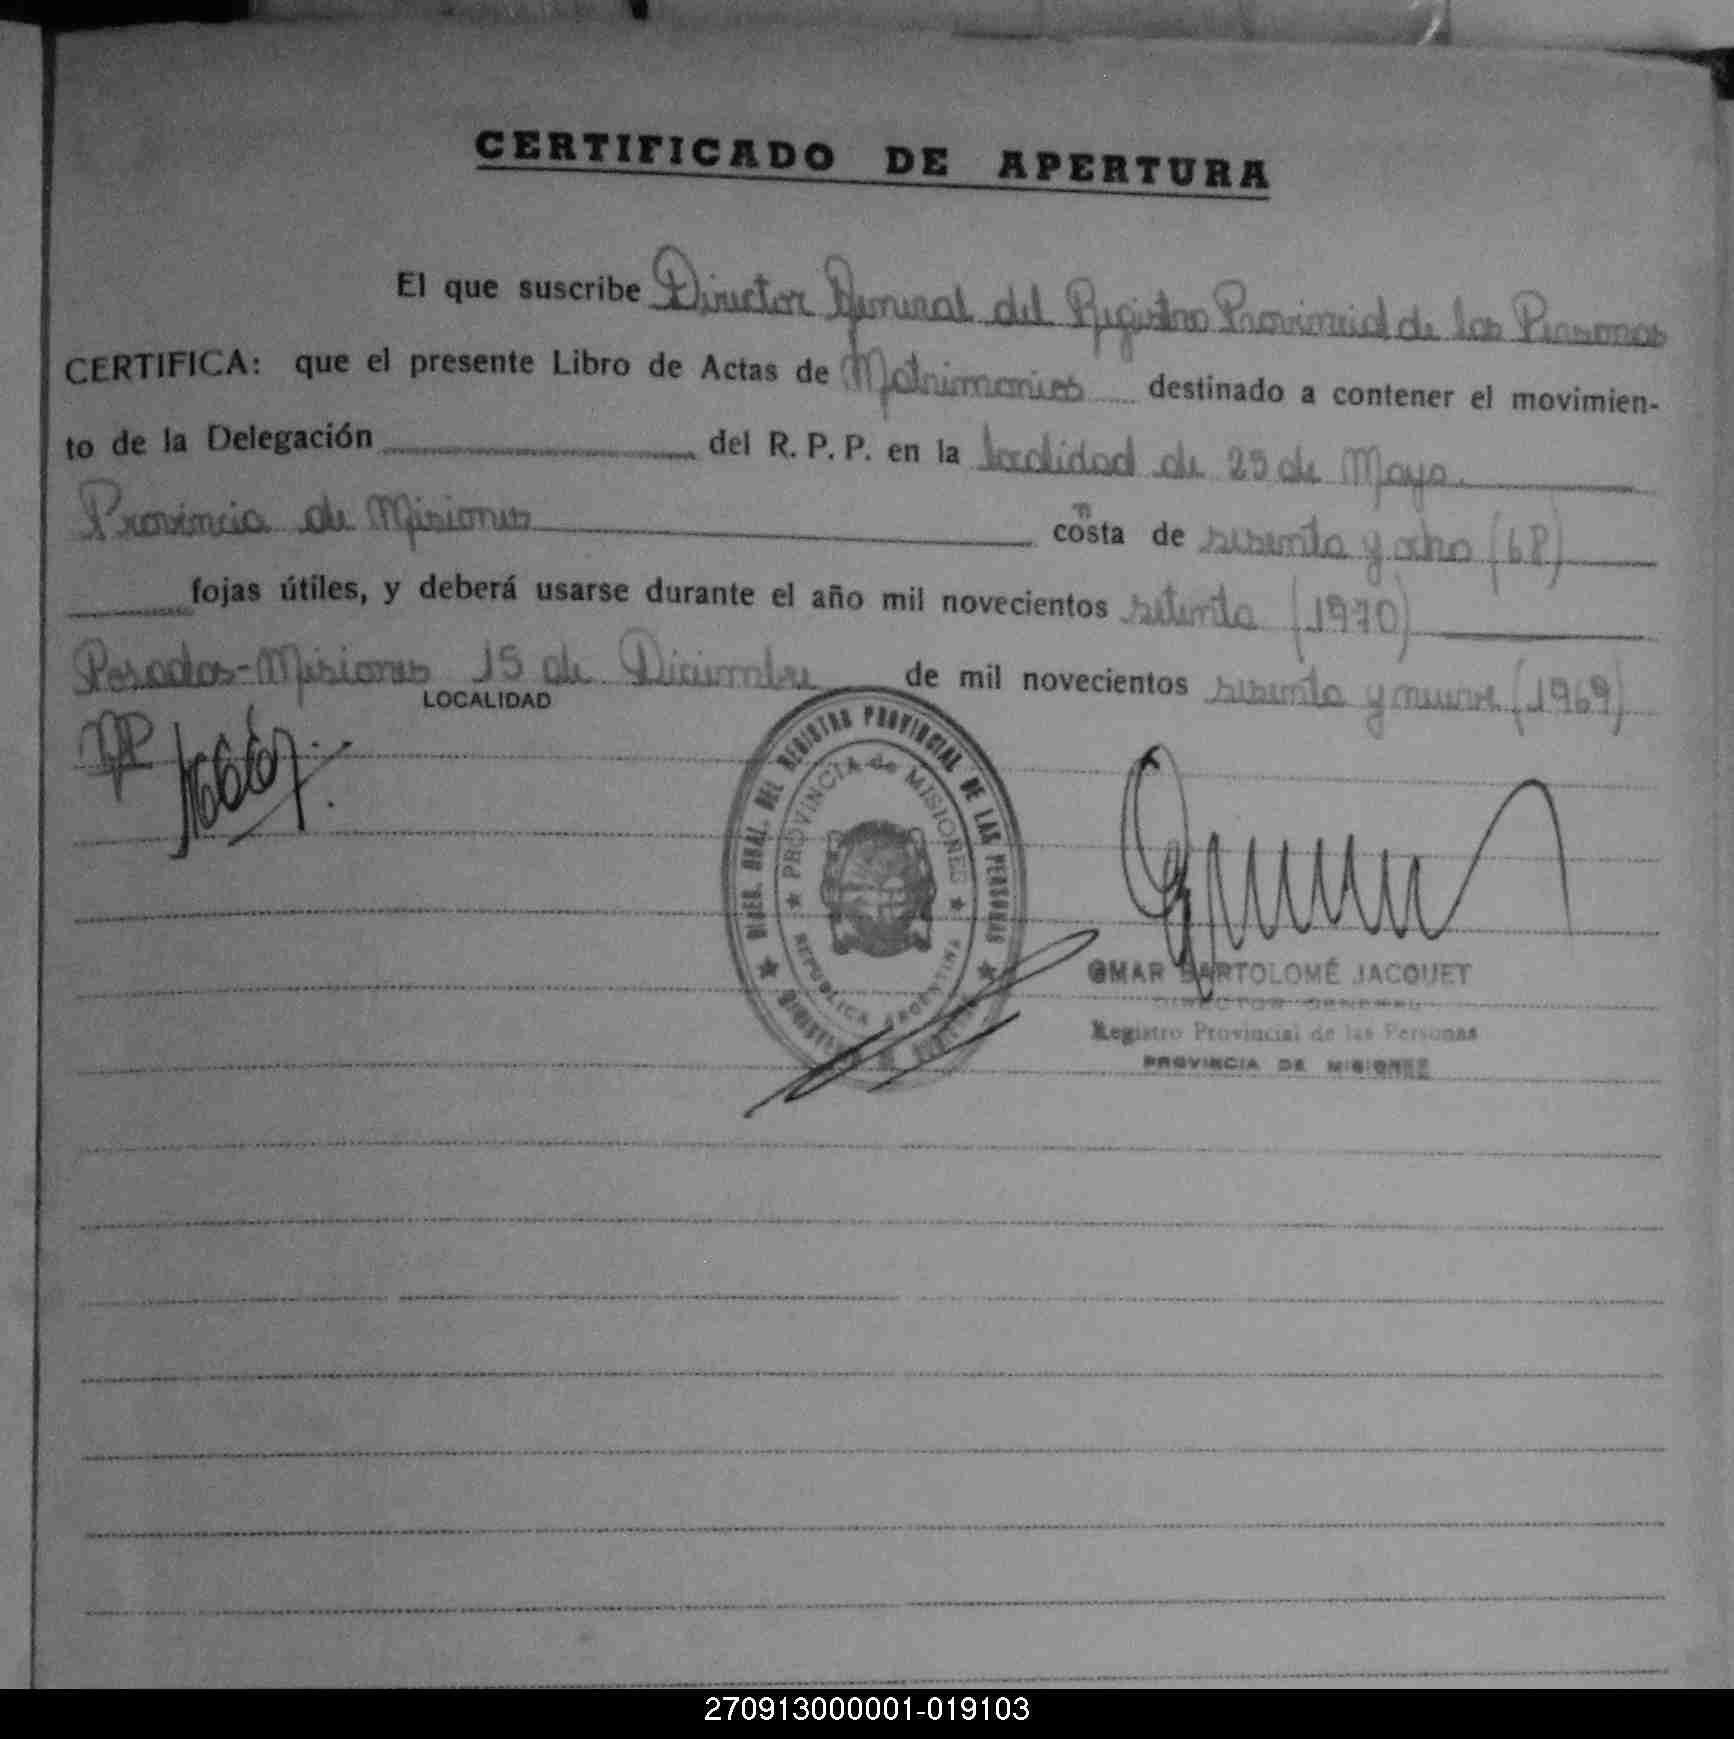 CERTIFICADO DE APERTURA
El que suscribe Director General del Registro Provincial de las Personas
CERTIFICA: que el presente Libro de Actas de Matrimonios destinado a contener el movimien-
to de la Delegación del R. P. P. en la localidad de 25 de Mayo.
Provincia de Misiones consta de sesenta y ocho (68)
fojas útiles, y deberá usarse durante el año mil novecientos setenta (1970)
Posadas-Misiones 15 de Diciembre de mil novecientos sesenta y nueve (1969)
LOCALIDAD
DIREC. GRAL. DEL REGISTRO PROVINCIAL DE LAS PERSONAS
PROVINCIA de MISIONES
REPUBLICA ARGENTINA
OMAR BARTOLOMÉ JACQUET
DIRECTOR GENERAL
Registro Provincial de las Personas
PROVINCIA DE MISIONES
270913000001-019103